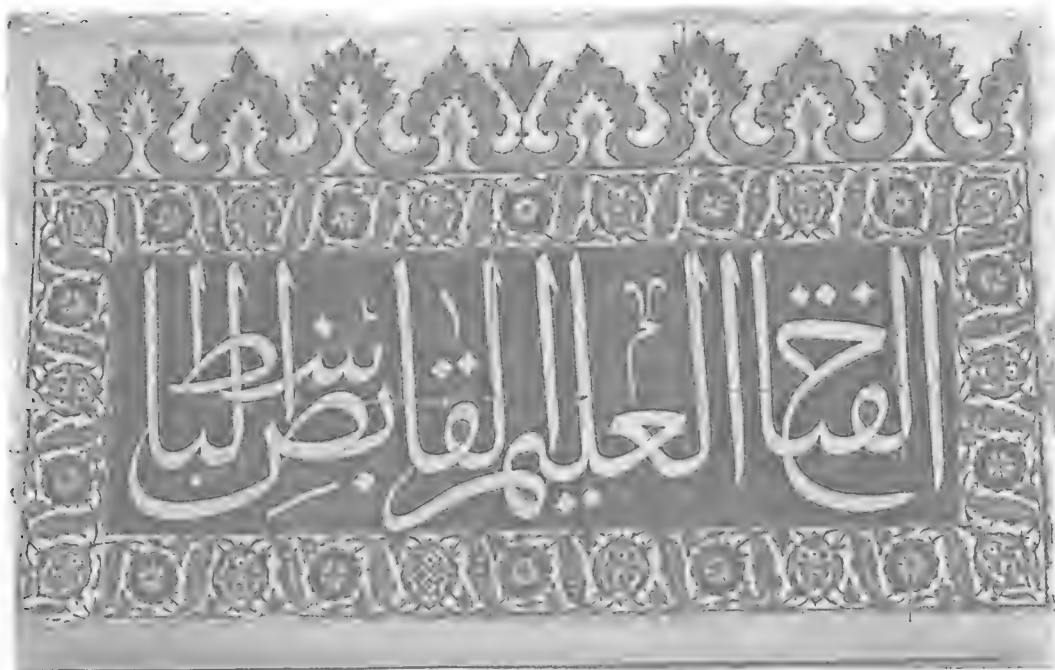 الفتاح العليم القابض الباسط